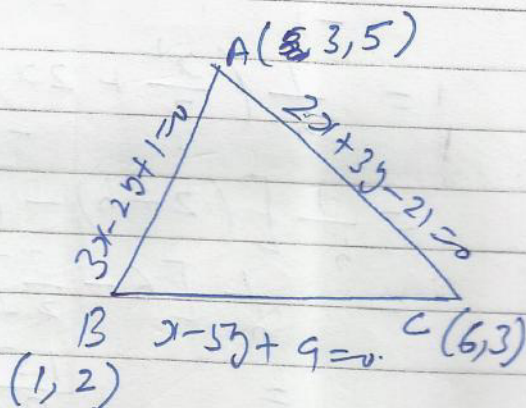 A (3, 5)
3x-2y+1=0
2x+3y-21=0
B
x-5y+9=0.
C (6,3)
(1, 2)